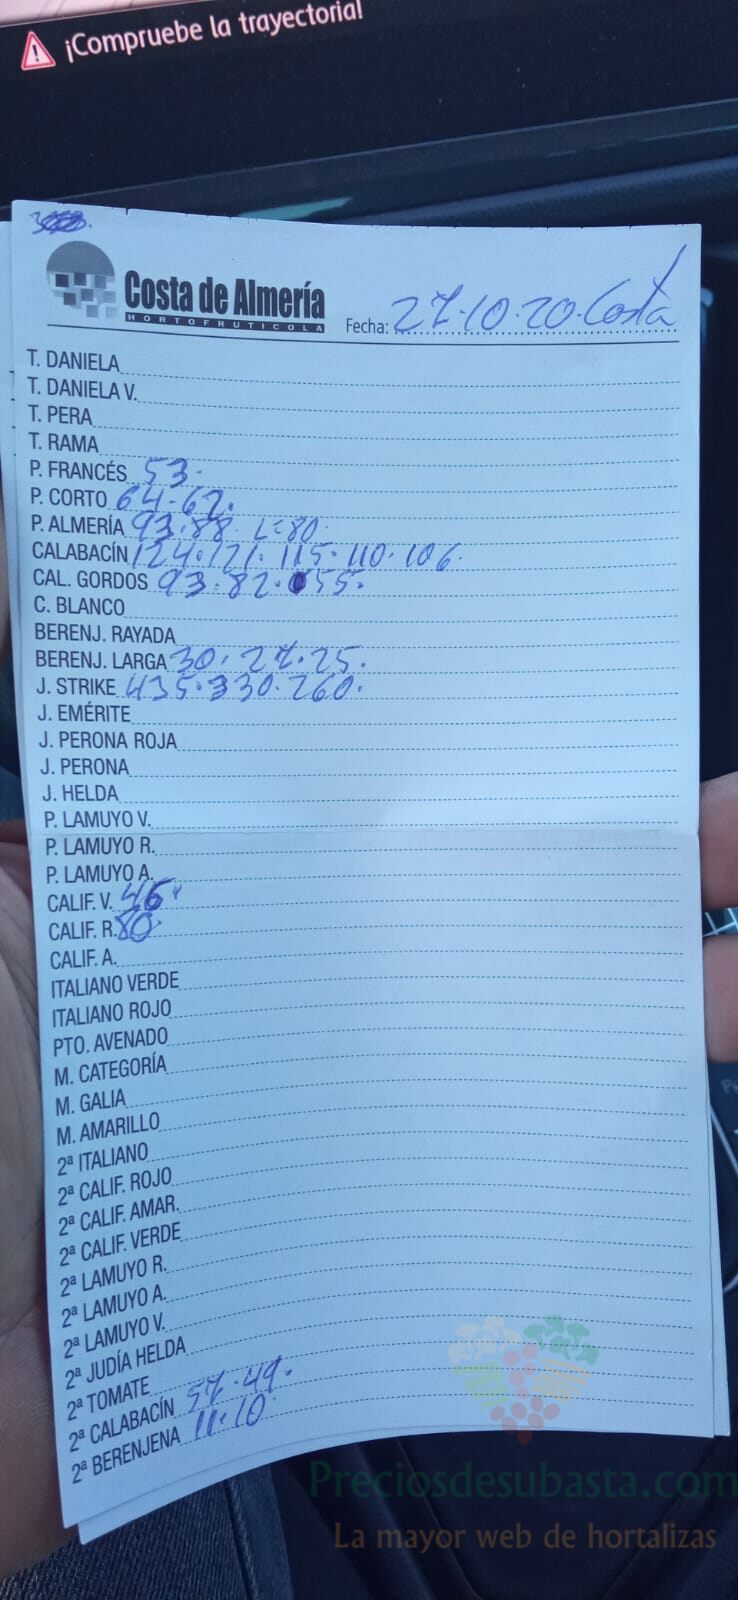 ¡Compruebe la trayectoria!
Costa de Almería
HORTOFRUTICOLA
Fecha: 27.10.20. Costa
T. DANIELA
T. DANIELA V.
T. PERA
T. RAMA
P. FRANCÉS 53.
P. CORTO 64-62.
P. ALMERÍA 93.88. L=80.
CALABACÍN 124.121.115.110.106.
CAL. GORDOS 93.82.55.
C. BLANCO
BERENJ. RAYADA
BERENJ. LARGA 30.27.25.
J. STRIKE 435.330.260.
J. EMÉRITE
J. PERONA ROJA
J. PERONA
J. HELDA
P. LAMUYO V.
P. LAMUYO R.
P. LAMUYO A.
CALIF. V. 46
CALIF. R. 80
CALIF. A.
ITALIANO VERDE
ITALIANO ROJO
PTO. AVENADO
M. CATEGORÍA
M. GALIA
M. AMARILLO
2ª ITALIANO
2ª CALIF. ROJO
2ª CALIF. AMAR.
2ª CALIF. VERDE
2ª LAMUYO R.
2ª LAMUYO A.
2ª LAMUYO V.
2ª JUDÍA HELDA
2ª TOMATE
2ª CALABACÍN 57.49.
2ª BERENJENA 11.10
Preciosdesubasta.com
La mayor web de hortalizas